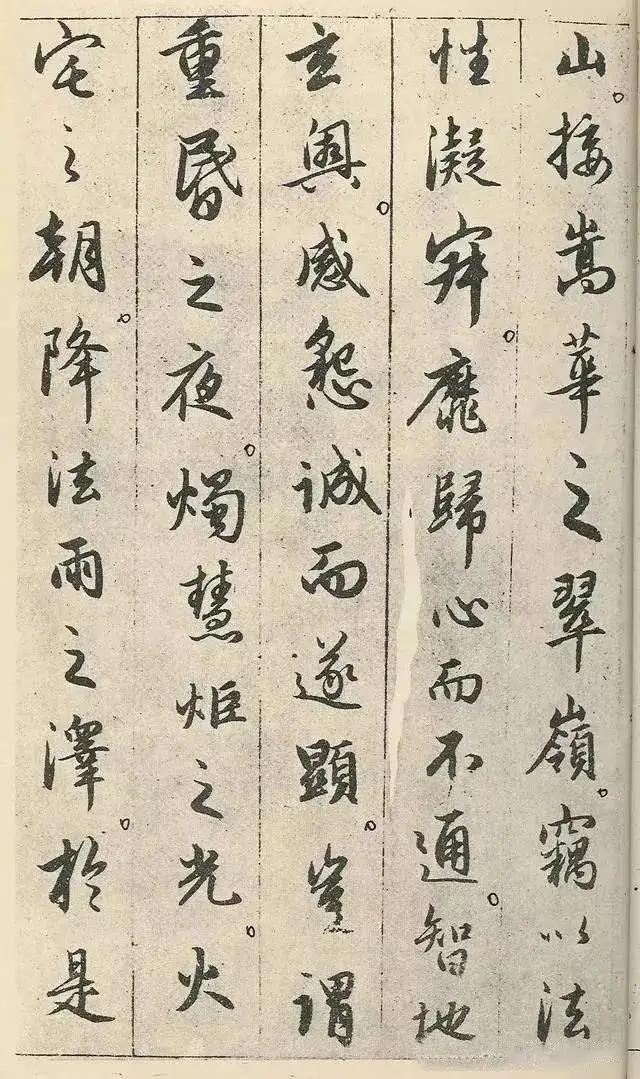 山。接嵩華之翠嶺。竊以法
性凝寂。靡歸心而不通。智地
玄奧。感懇誠而遂顯。豈謂
重昏之夜。燭慧炬之光。火
宅之朝。降法雨之澤。於是